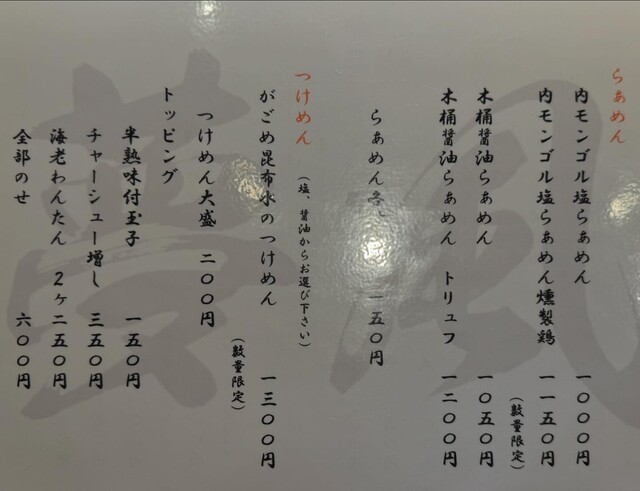 らぁめん
内モンゴル塩らぁめん 一〇〇〇円
内モンゴル塩らぁめん燻製鶏 一一五〇円
(数量限定)
木桶醤油らぁめん 一〇五〇円
木桶醤油らぁめん トリュフ 一二〇〇円
らぁめん 一五〇円
つけめん
(塩、醤油からお選び下さい)
がごめ昆布水のつけめん 一三〇〇円
(数量限定)
つけめん大盛 二〇〇円
トッピング
半熟味付玉子 一五〇円
チャーシュー増し 三五〇円
海老わんたん 2ヶ 二五〇円
全部のせ 六〇〇円
夢風